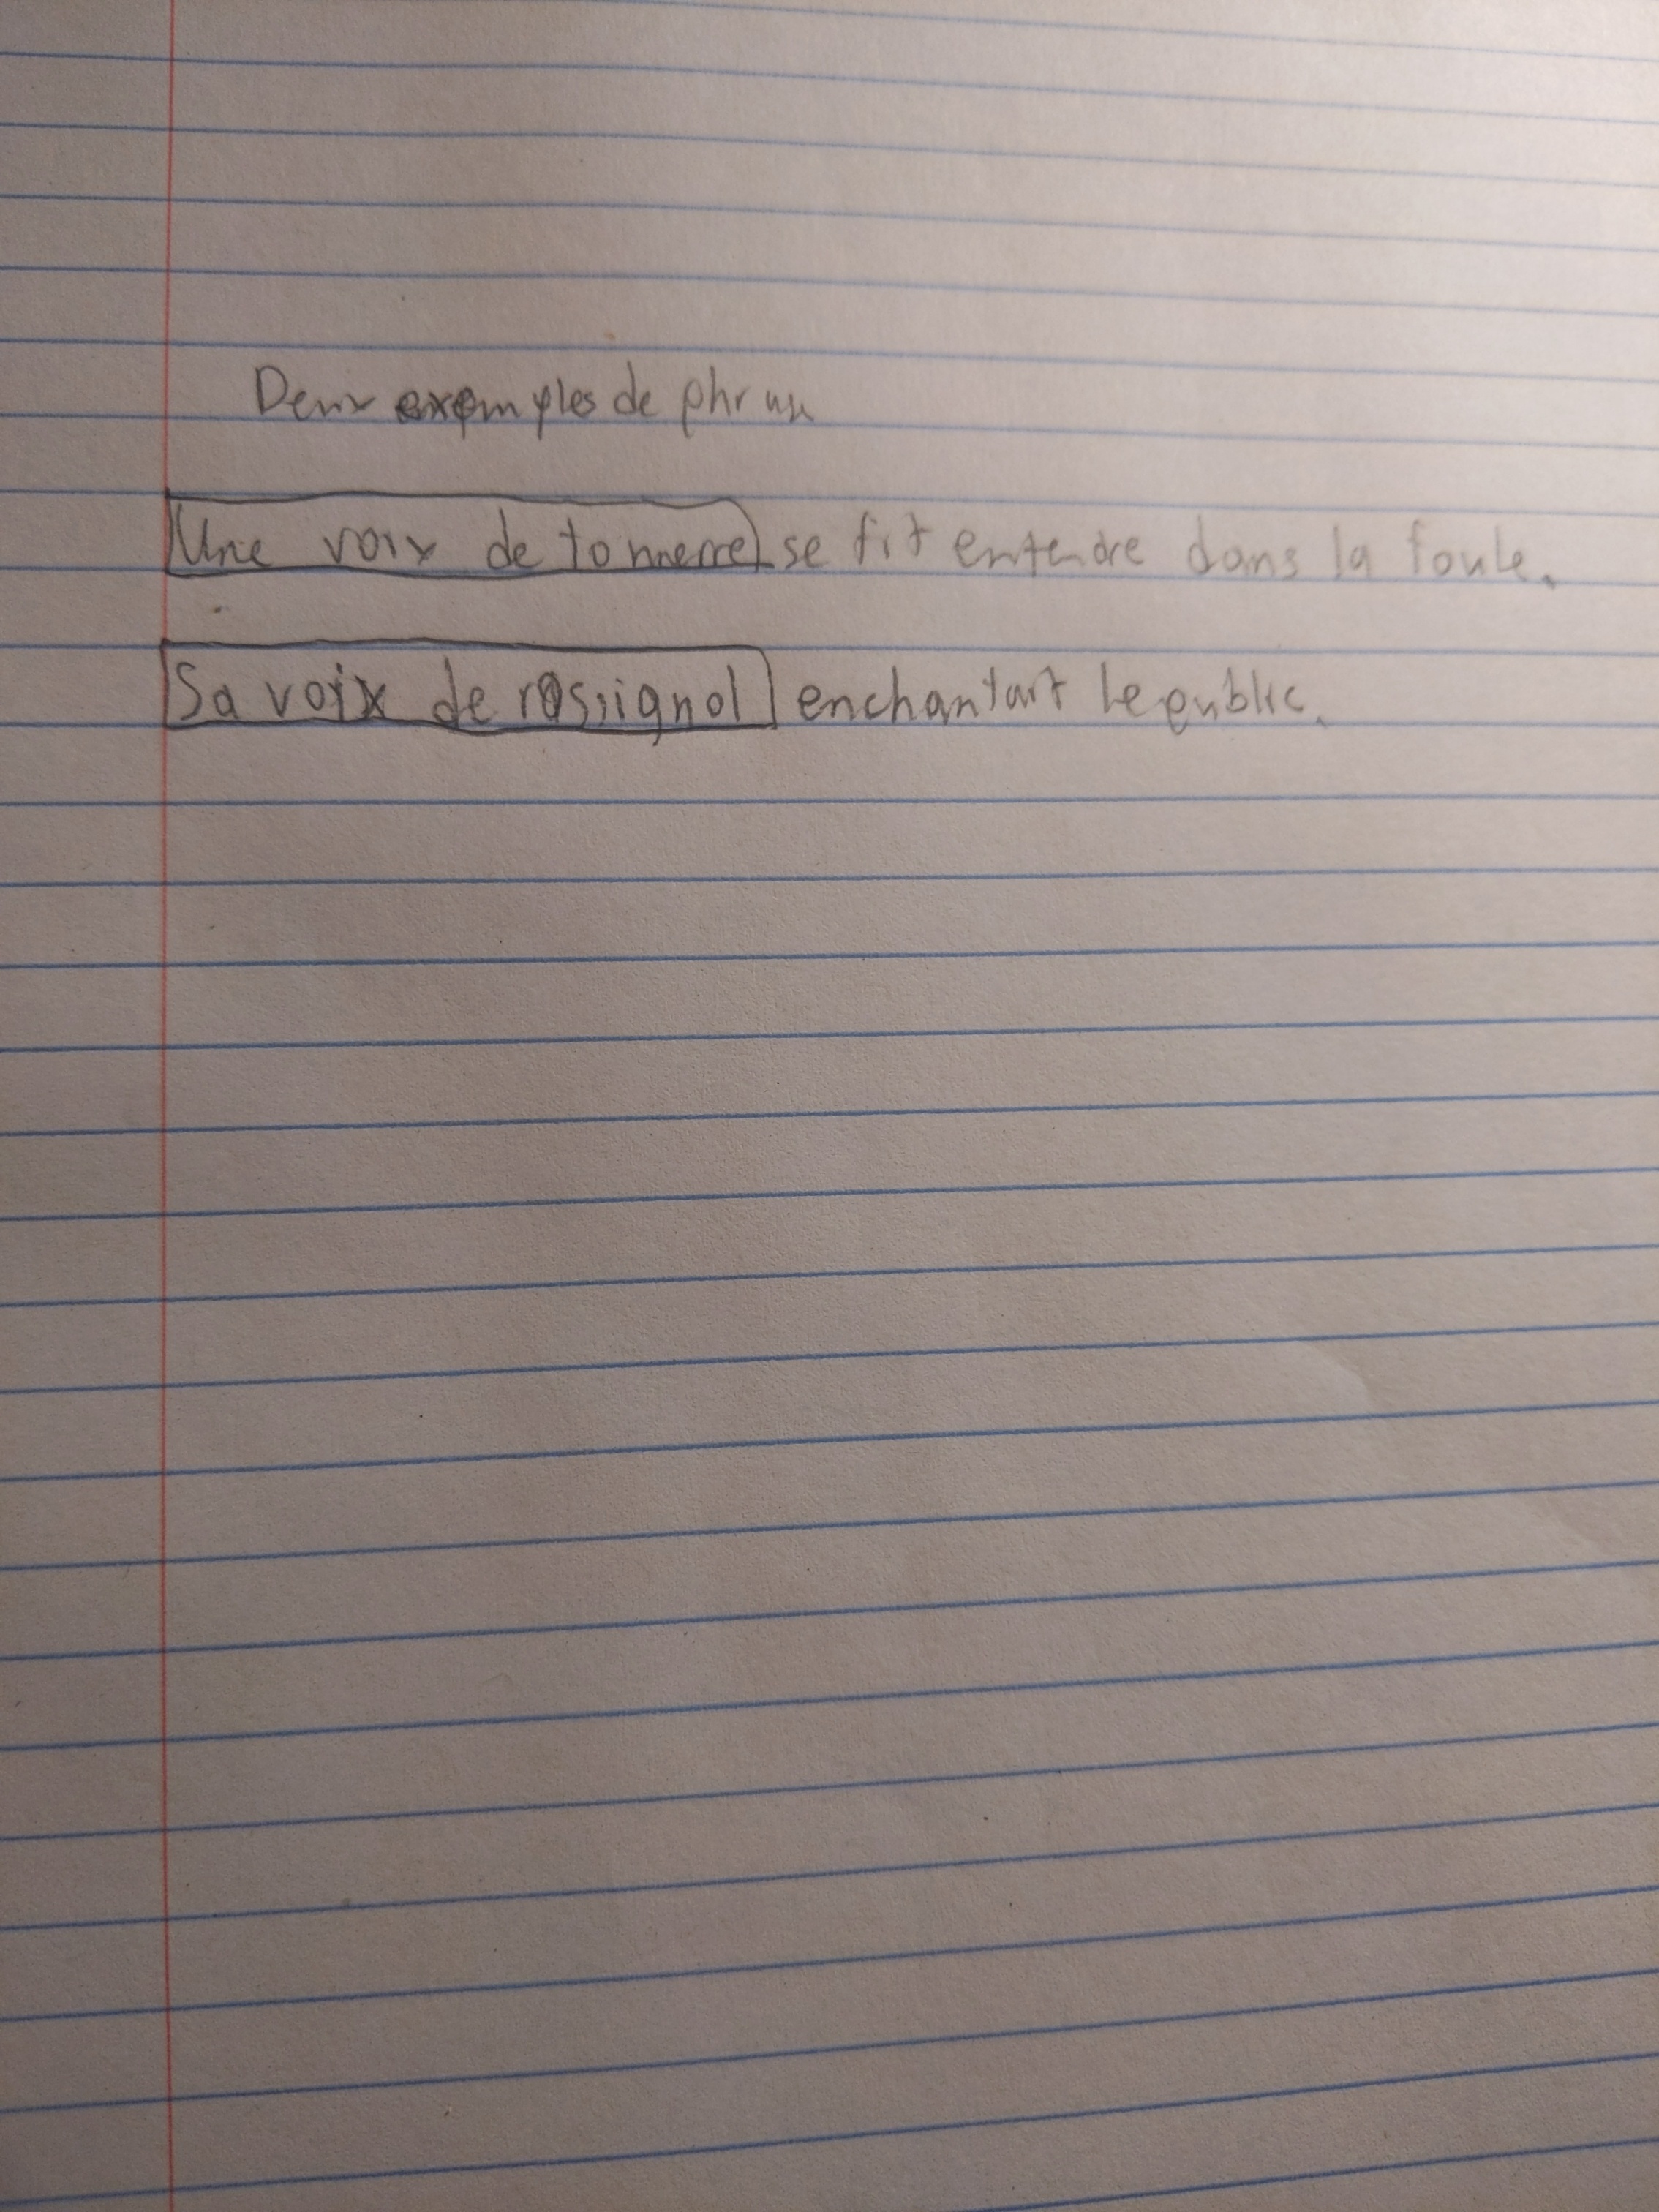 Deux exemples de phrase
Une voix de tonnerre se fit entendre dans la foule.
Sa voix de rossignol enchantait le public.